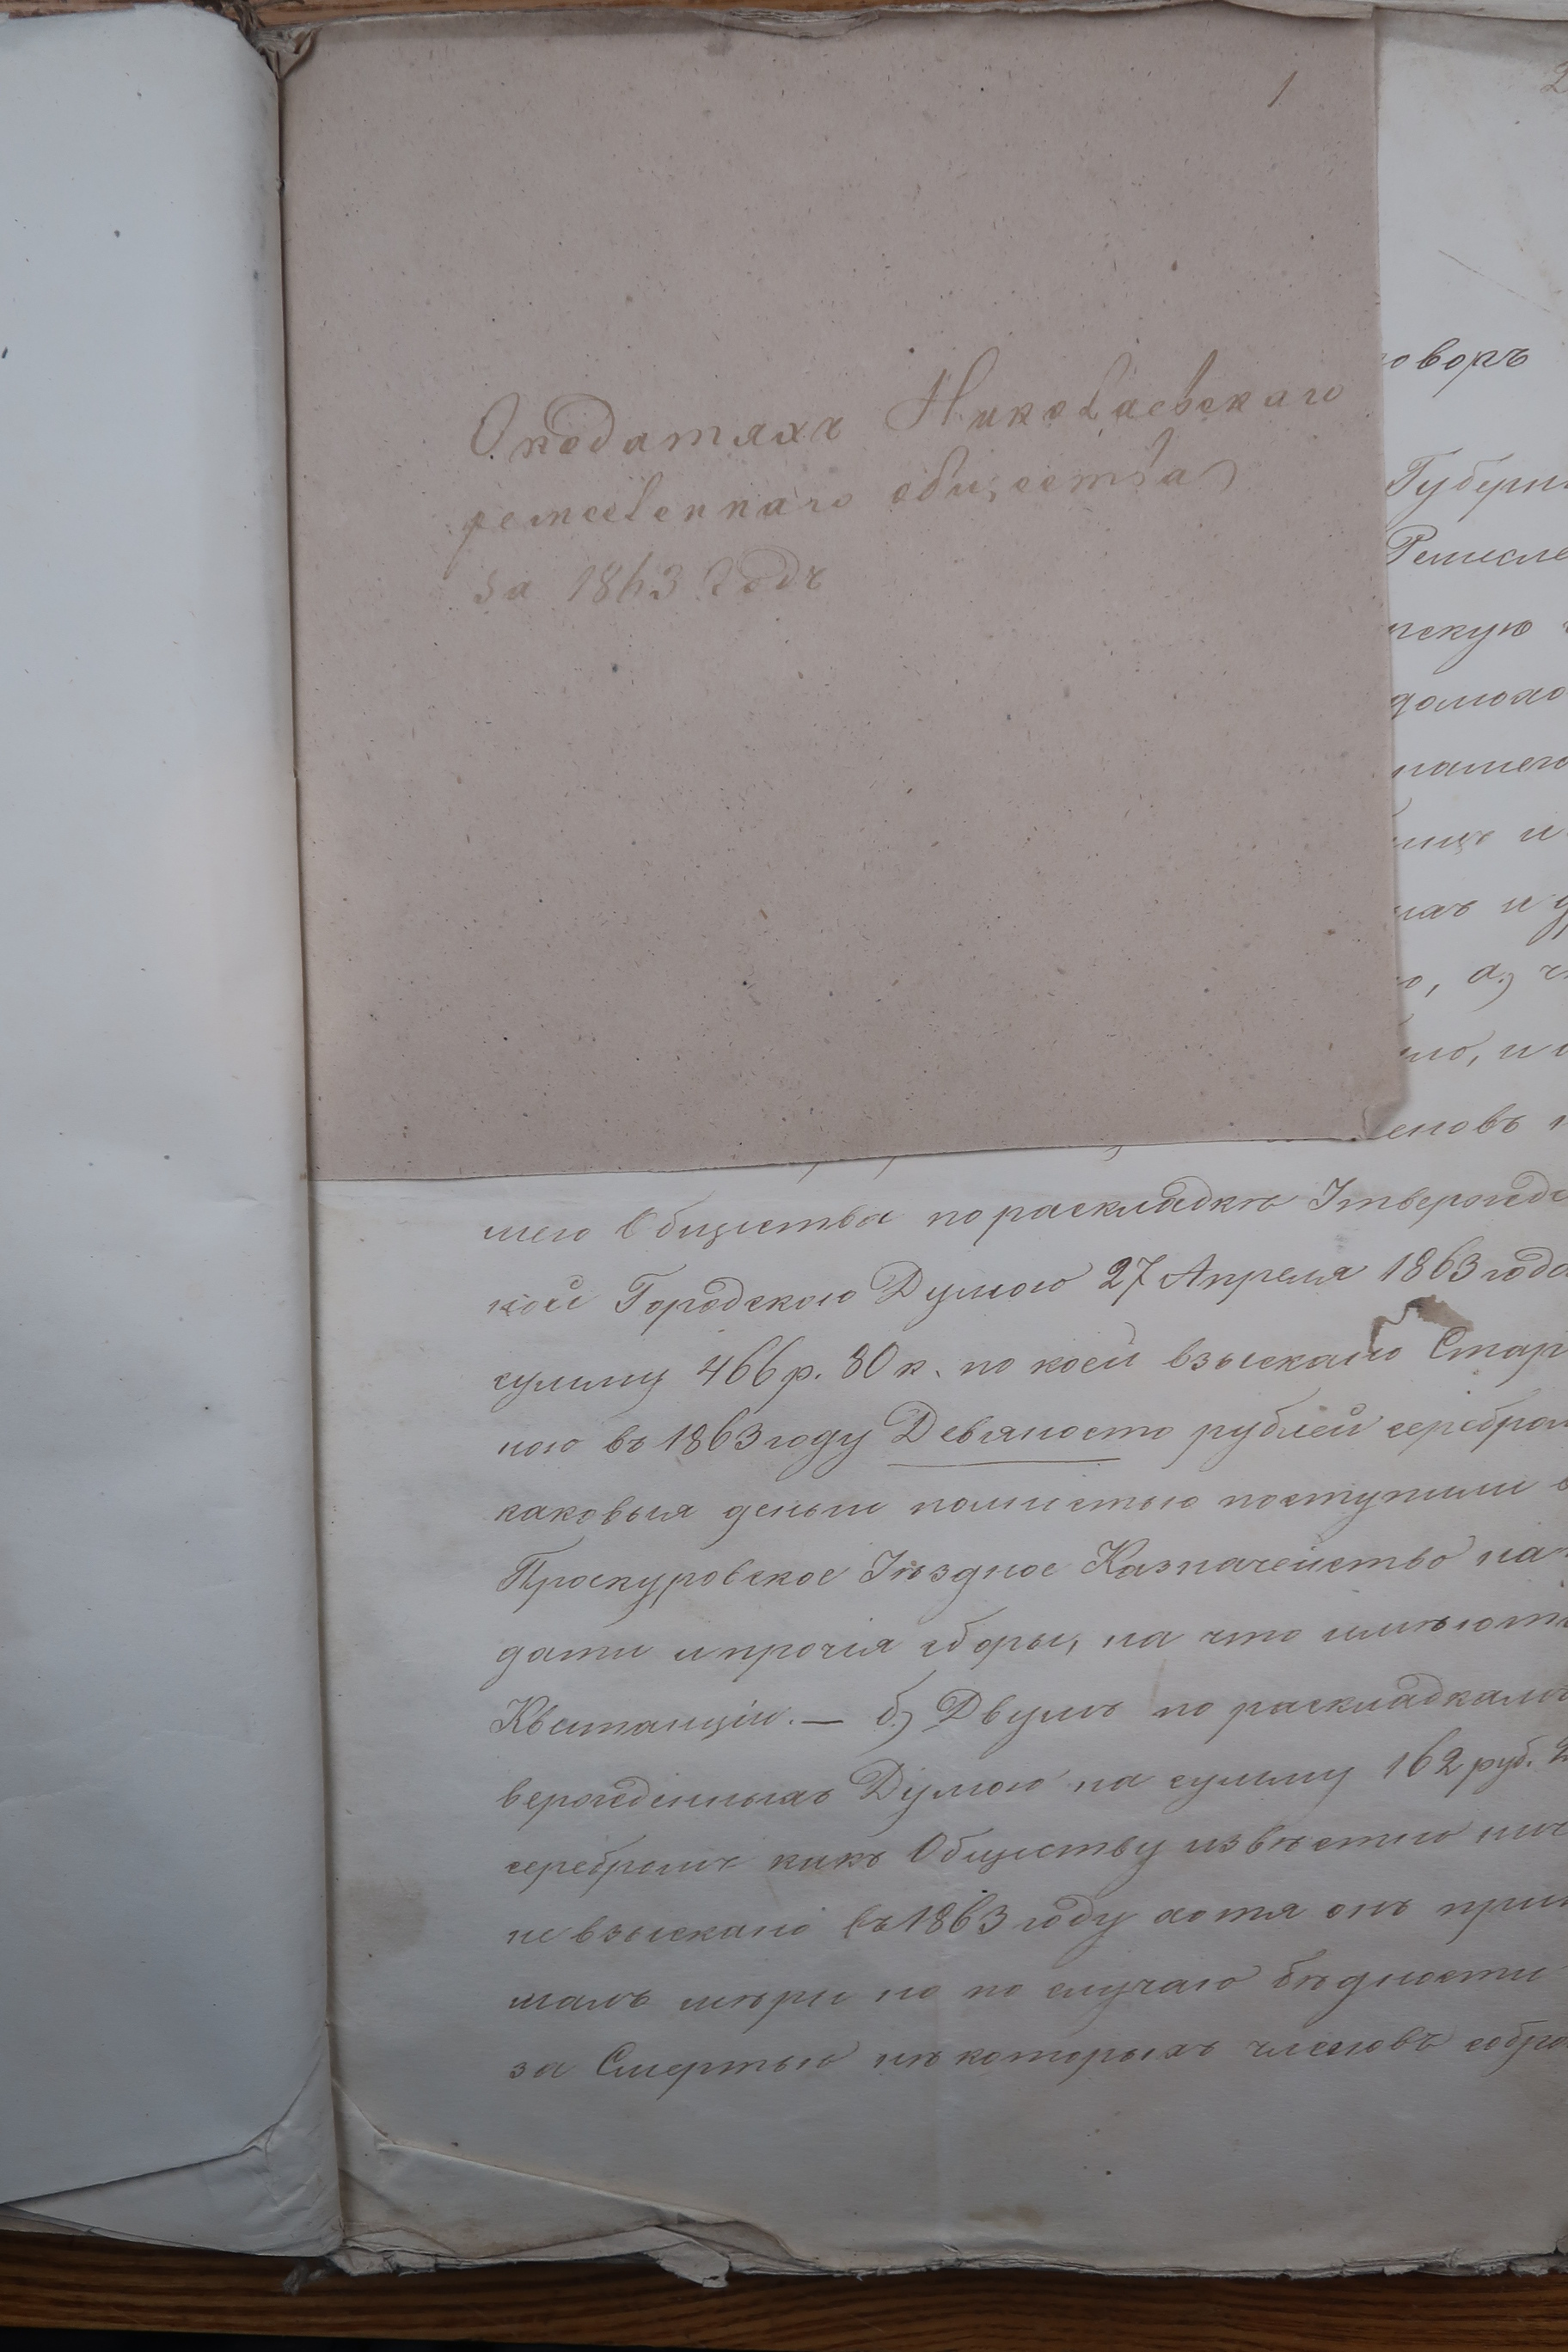 1
О податяхъ Николаевскаго
ремесленнаго общества
за 1863 годъ
2
оворъ
Губерн
Ремесле
скую
домохо
нашего
ницъ и
, а)
ло, и
еновъ
шего Общества по раскладкѣ Утвержде
кой Городскою Думою 27 Апреля 1863 года
сумму 466 р. 80 к. по коей взыскано Стар
ною въ 1863 году Девяносто рублей серебром
каковыя деньги полностью поступили в
Проскуровское Уѣздное Казначейство на
дати и прочія сборы, на что имѣютъ
Квитанціи. — б) Двумъ по раскладкамъ
вержденныхъ Думою на сумму 162 руб.
серебромъ какъ Обществу извѣстно нич
не взыскано въ 1863 году хотя онъ прин
малъ мѣры но по случаю бѣдности
за Смертью нѣкоторыхъ членовъ собра